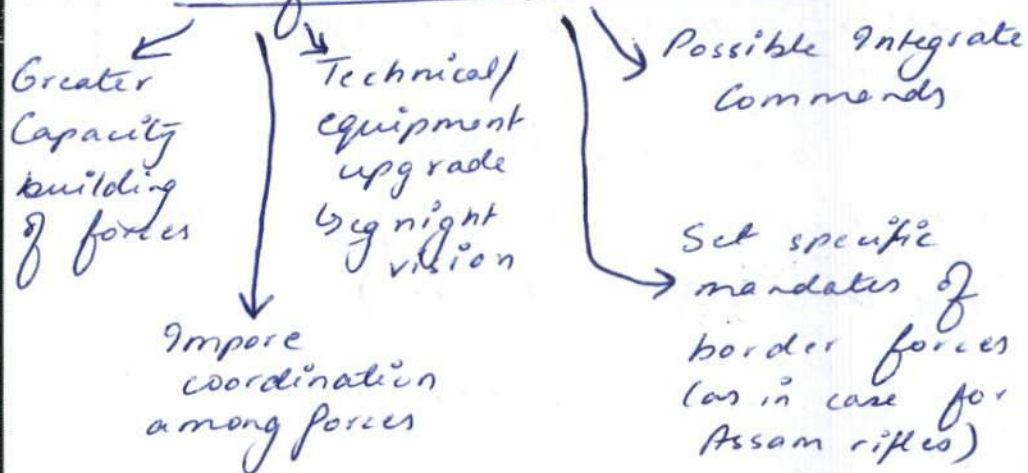 Greater
Capacity
building
of forces
Technical/
equipment
upgrade
eg night
vision
Possible Integrate
Commands
Impore
coordination
among forces
Set specific
mandates of
border forces
(as in case for
Assam rifles)